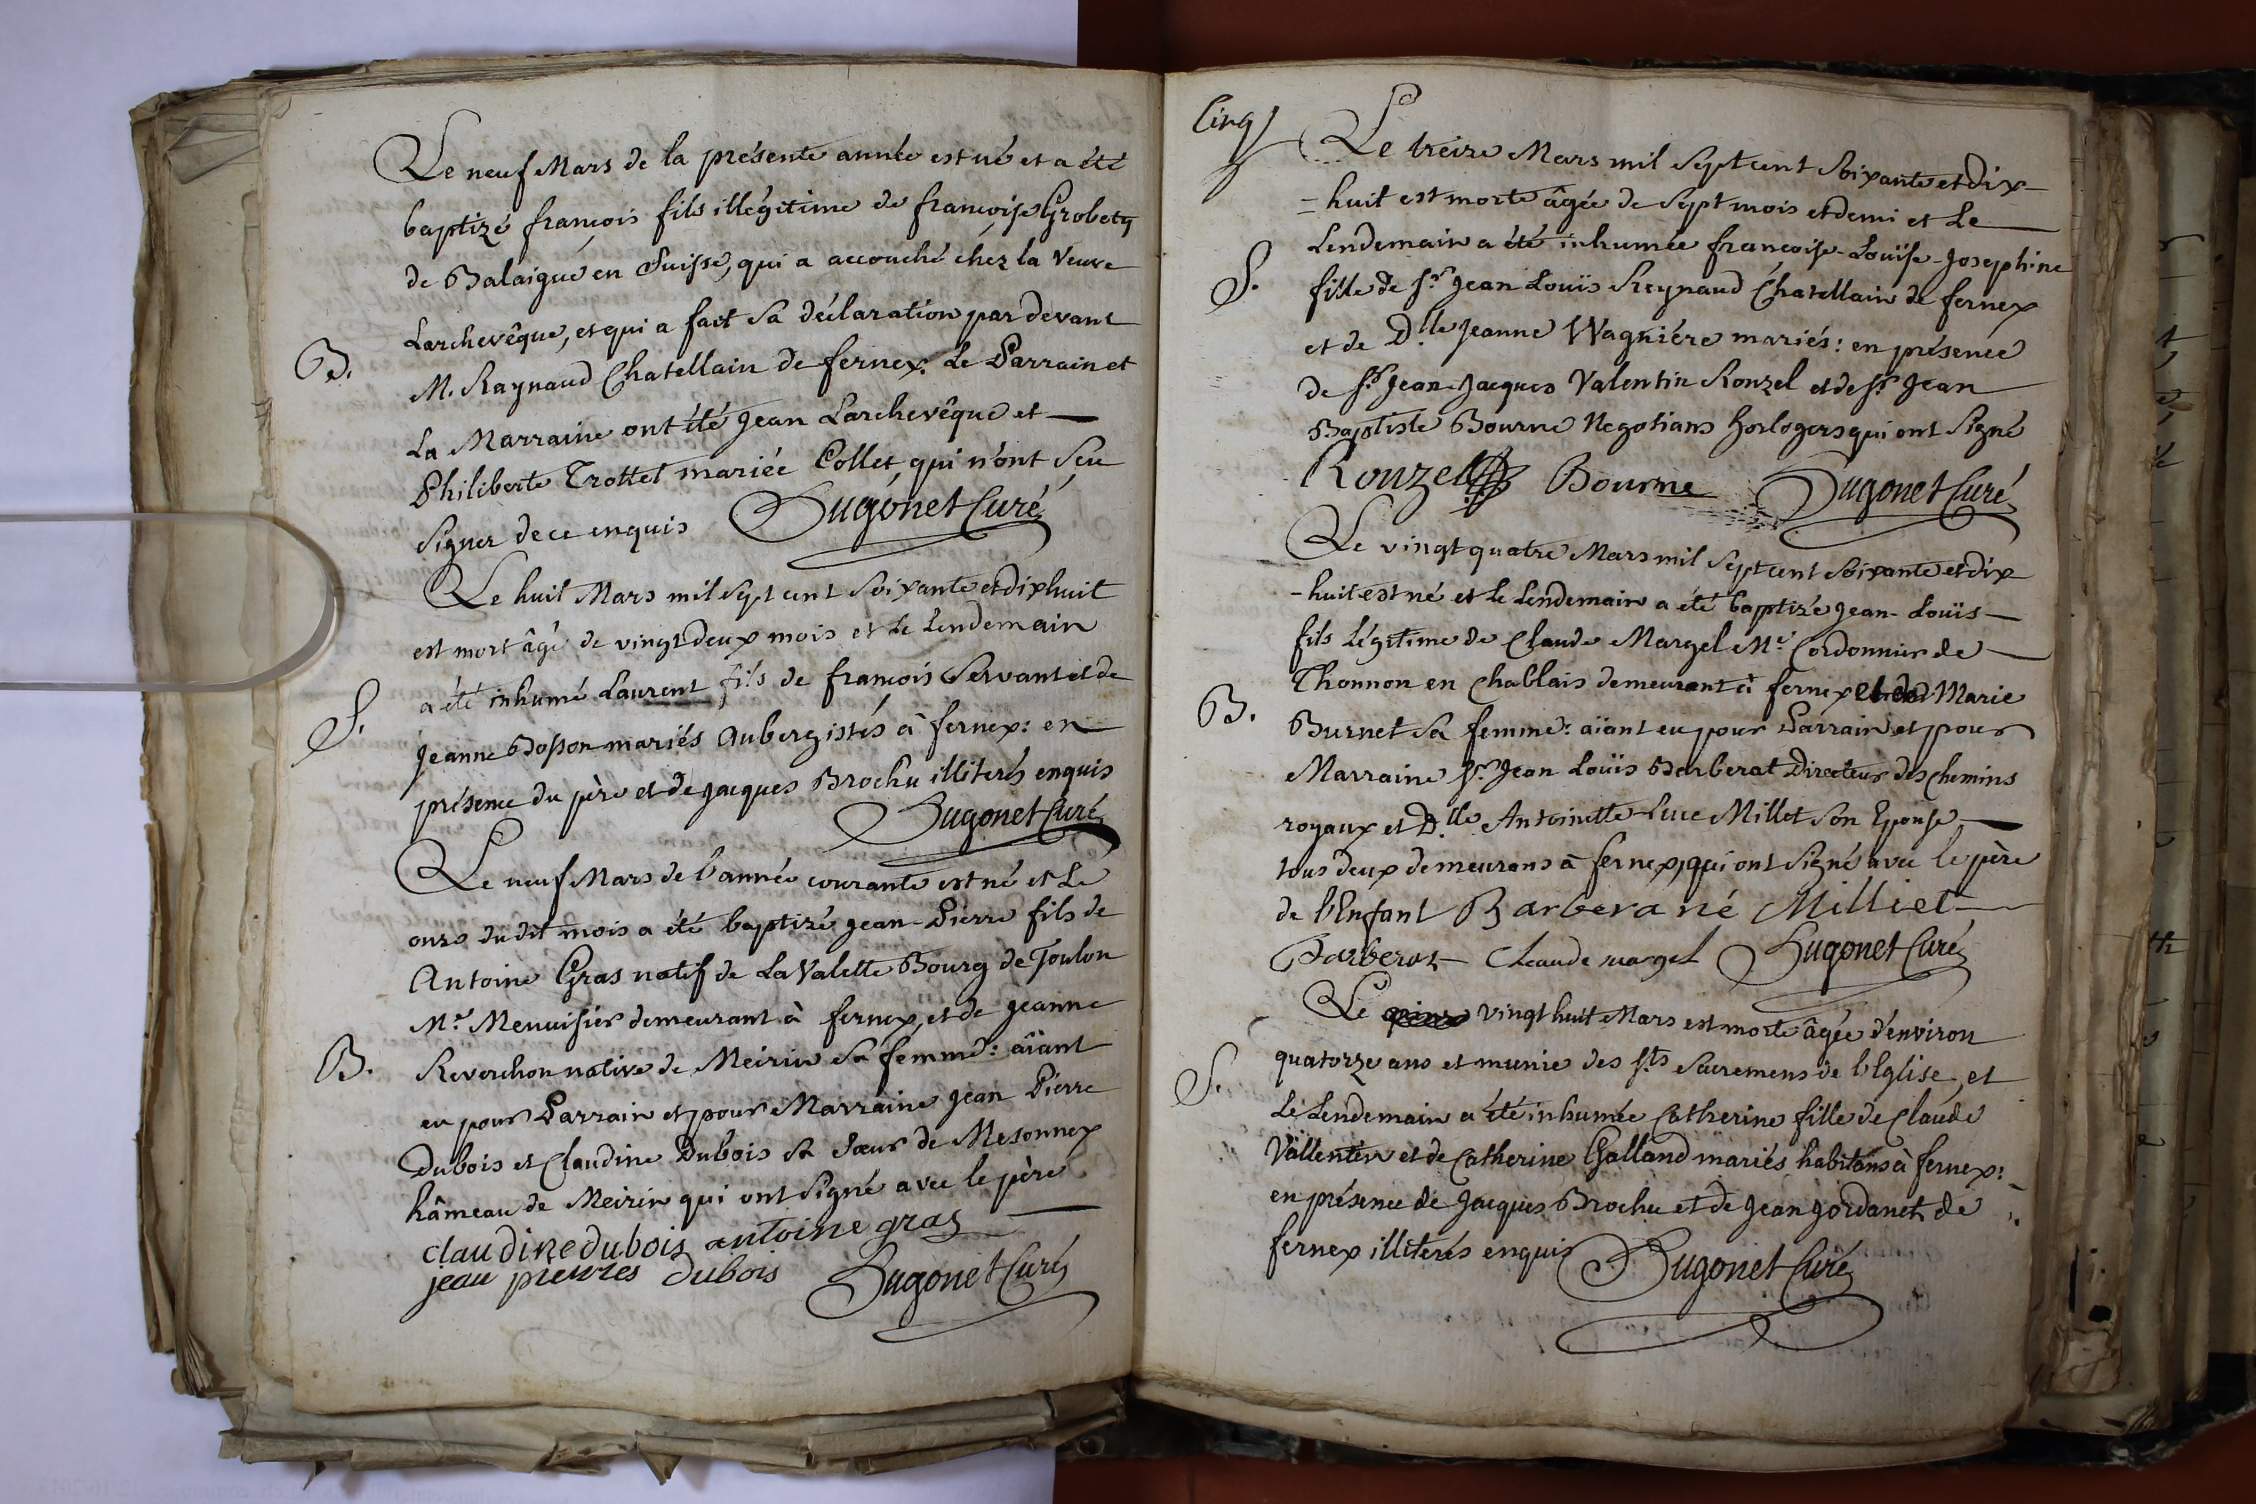 Le neuf Mars de la présente année est né et a été
baptizé françois fils illégitime de françoise Grobety
de Balaigue en Suisse, qui a accouché chez la Veuve
Larchevêque, et qui a fait sa déclaration par devant
B.
M. Raynaud Chatellain de fernex. Le Parrain et
la Marraine ont été Jean Larchevêque et
Philiberte Trottet mariée Collet, qui n'ont sçu
signer de ce enquis Hugonet Curé
Le huit Mars mil sept cent soixante et dix huit
est mort âgé de vingt deux mois et le Lendemain
a été inhumé Laurent fils de françois Servant et de
S.
Jeanne Bosson mariés Aubergistes à fernex: en
présence du père et de Jacques Brochu illiterés enquis
Hugonet Curé
Le neuf Mars de l'année courante est né et le
onze du dit mois a été baptizé Jean-Pierre fils de
Antoine Gras natif de La Valette Bourg de Toulon
Me. Menuisier demeurant à fernex, et de Jeanne
B.
Reverchon native de Meirin sa femme: aïant
eu pour Parrain et pour Marraine Jean Pierre
Dubois et Claudine Dubois sa sœur de Mesonnex
hâmeau de Meirin qui ont signé avec le père
claudine dubois antoine gras
jean pierres dubois Hugonet Curé
Cinq
Le treize Mars mil sept cent soixante et dix
-huit est morte âgée de sept mois et demi et le
Lendemain a été inhumée françoise-Louïse-Josephine
S.
fille de Sr. Jean Louïs Reynaud Chatellain de fernex
et de D.lle Jeanne Wagnière mariés: en présence
de Sr. Jean-Jacques Valentin Ronzel et de Sr. Jean
Baptiste Bourne Negotians horlogers qui ont signé
Ronzel Bourne Hugonet Curé
Le vingt quatre Mars mil sept cent soixante et dix
-huit est né et le Lendemain a été baptizé Jean-Louïs
fils légitime de Claude Margel Me. Cordonnier de
Thonnon en Chablais demeurant à fernex et de Marie
B.
Burnet sa femme: aïant eu pour Parrain et pour
Marraine Sr. Jean Louïs Barberat Directeur des chemins
royaux et D.lle Antoinette-Luce Millet son Epouse
tous deux demeurans à fernex, qui ont signé avec le père
de l'Enfant Barbera né Milliet
Barberat Claude margel Hugonet Curé
Le vingt huit Mars est morte âgée d'environ
quatorze ans et munie des Sts. sacremens de l'Eglise, et
S.
le Lendemain a été inhumée Catherine fille de Claude
Vallentin et de Catherine Galland mariés habitans à fernex:
en présence de Jacques Brochu et de Jean Jordanet de
fernex illiterés enquis Hugonet Curé